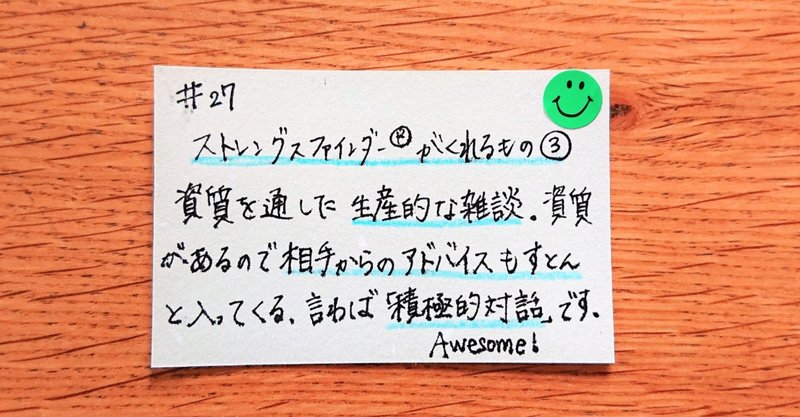 #27
ストレングスファインダー®がくれるもの③
資質を通した 生産的な雑談。資質
があるので相手からのアドバイスもすとん
と入ってくる、言わば「積極的対話」です。
Awesome!